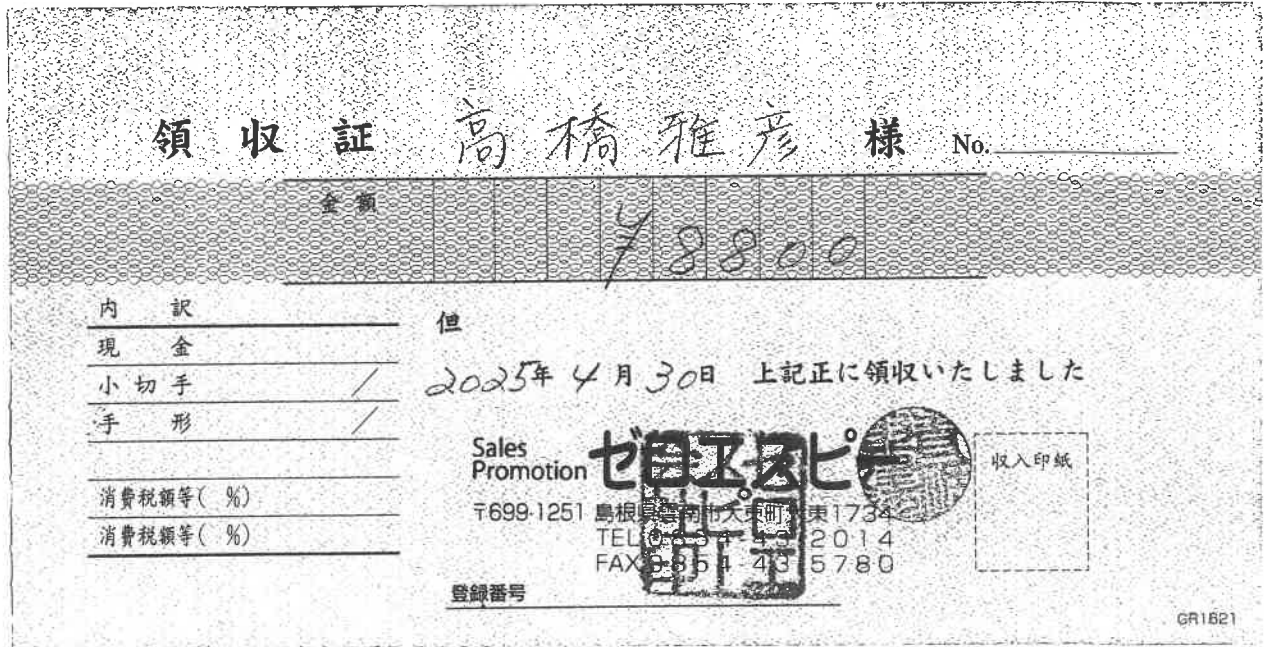 領収証 高橋雅彦 様 No.
金額 ¥8800
内訳
現金
小切手 /
手形 /
消費税額等( %)
消費税額等( %)
但
2025年 4月30日 上記正に領収いたしました
Sales Promotion ゼロエスピー
〒699-1251 島根県雲南市大東町大東1734
TEL 0854-43-2014
FAX 0854-43-5780
登録番号
収入印紙
GR1621